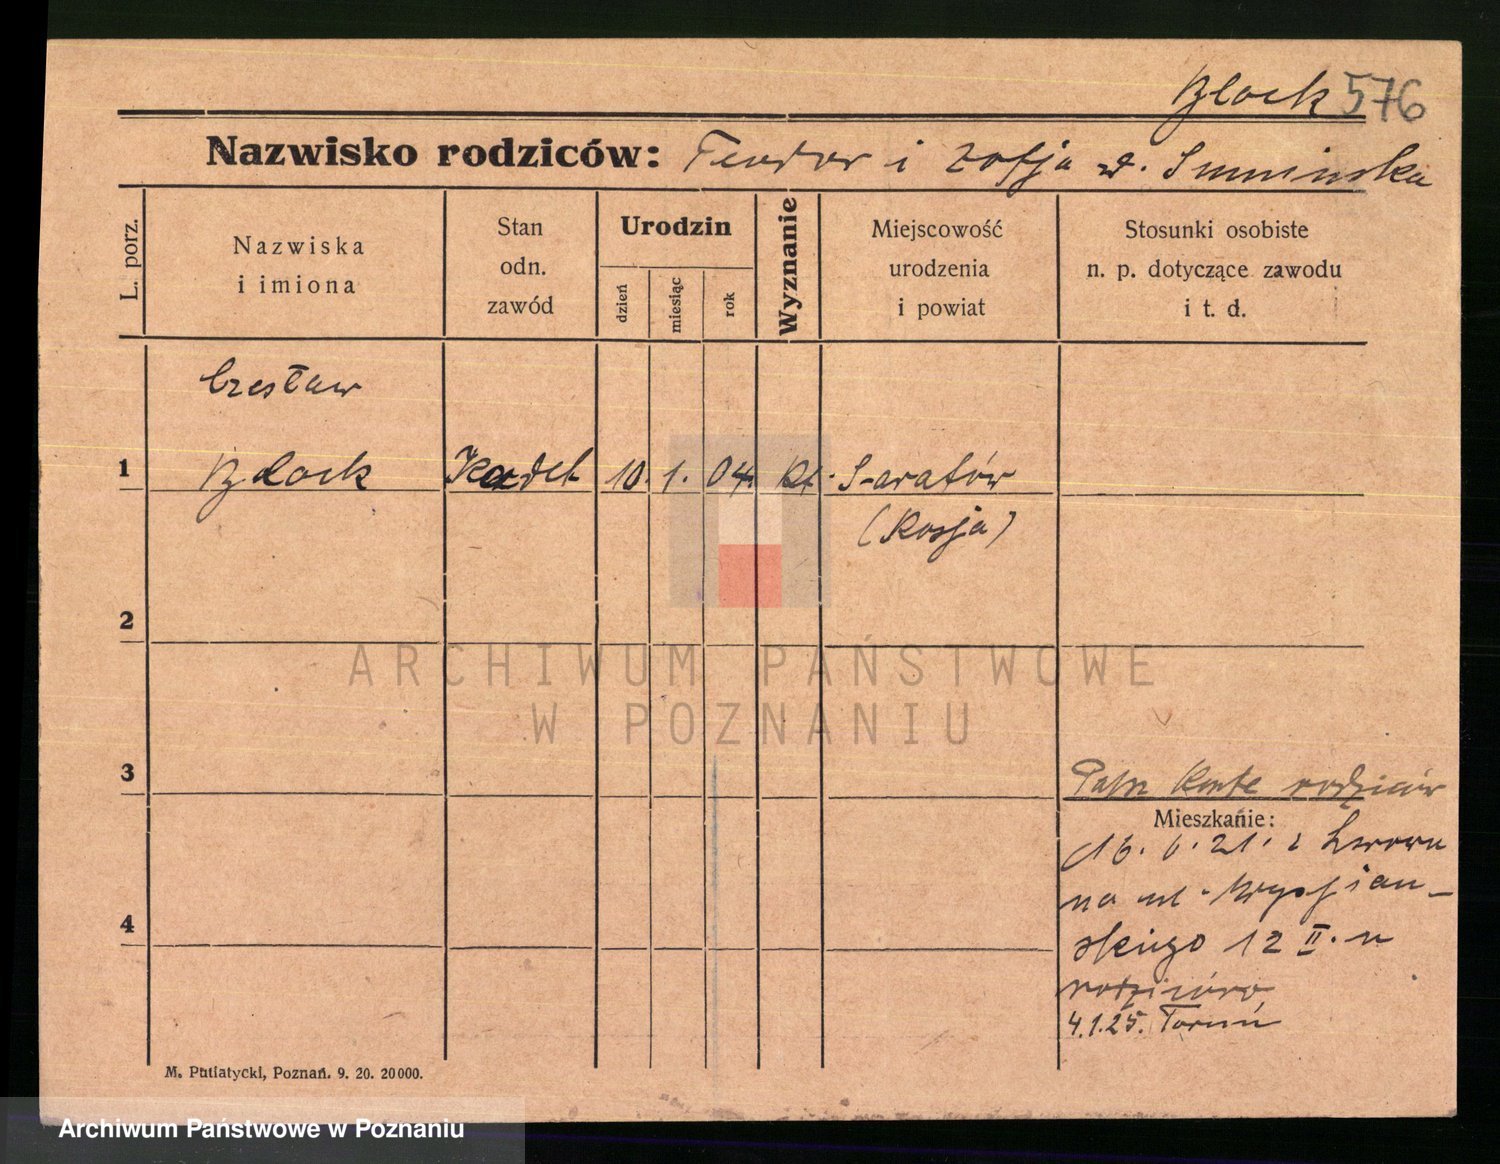 Block 576
Nazwisko rodziców: Teodor i Zofja z d. Sumińska
L. porz.
Nazwiska
i imiona
Stan
odn.
zawód
Urodzin
dzień
miesiąc
rok
Wyznanie
Miejscowość
urodzenia
i powiat
Stosunki osobiste
n. p. dotyczące zawodu
i t. d.
Czesław
1 Block Kadet 10. 1. 04. kt. Saratów
(Rosja)
2
ARCHIWUM PAŃSTWOWE
W POZNANIU
3
Patrz Karte rodziców
Mieszkanie:
16. 6. 21. z Lwowa
na ul.
4
skiego 12 II. u
rodziców
4.1.25. Toruń
M. Putiatycki, Poznań. 9. 20. 20000.
Archiwum Państwowe w Poznaniu